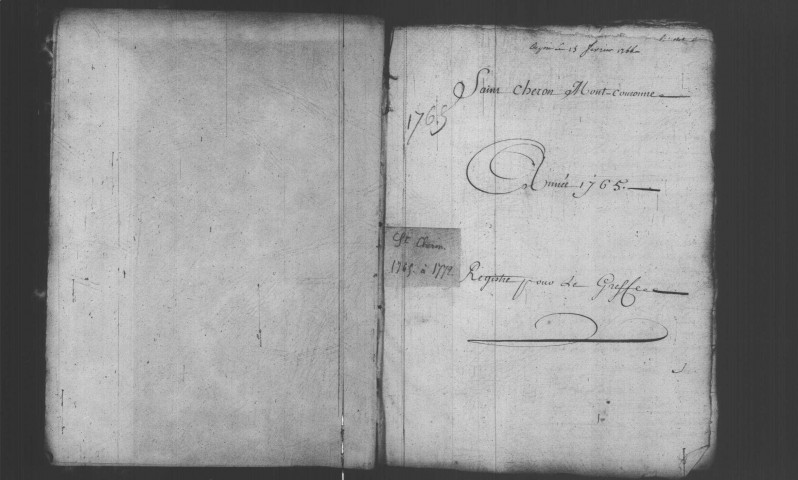 le 15 fevrier 1766
Saint Cheron Mont-couronne
1765
Année 1765.
St Cheron.
1765. à 1772
Registre pour Le Greffe